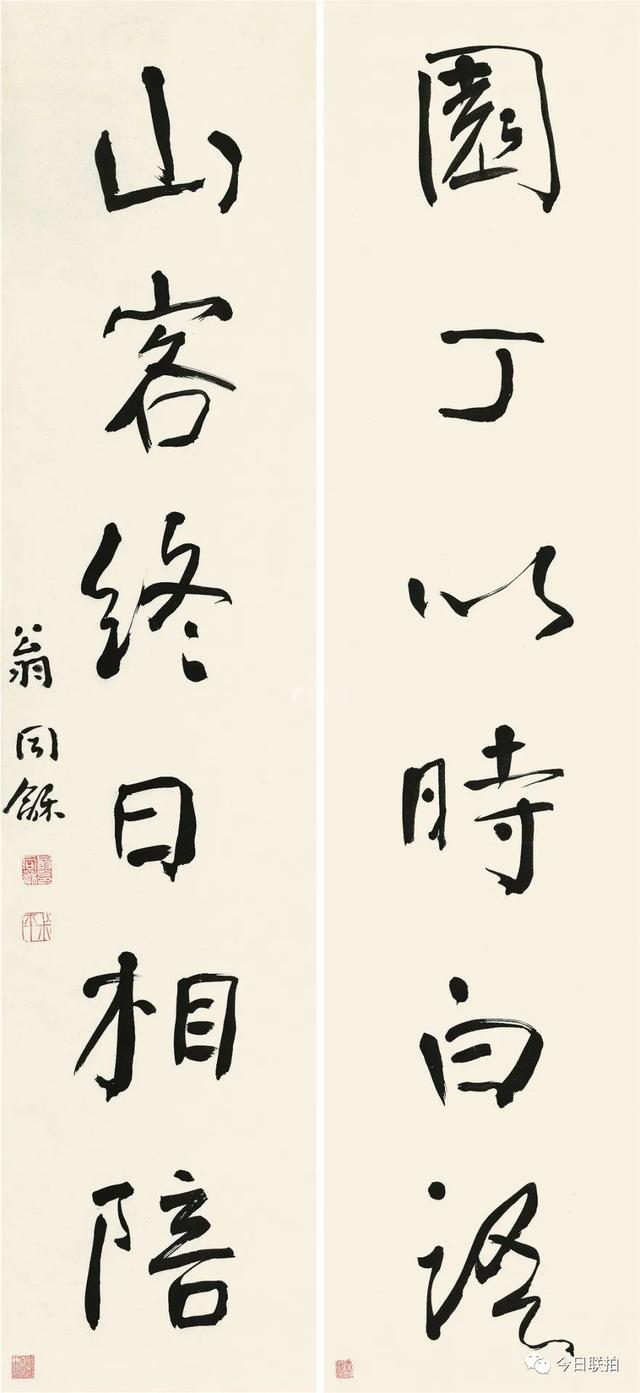 園丁以時白
山客終日相陪
翁同龢
今日联拍